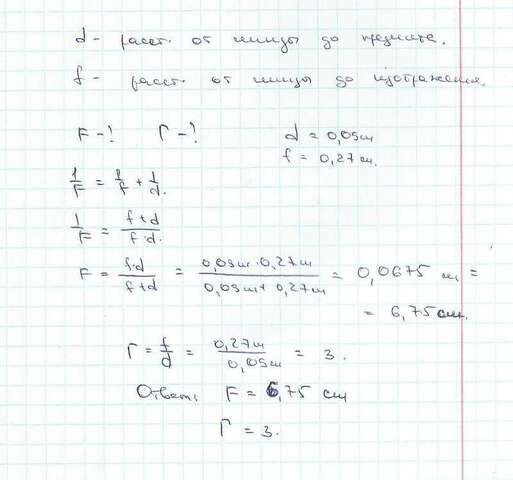 d - расст. от линзы до предмета.
f - расст. от линзы до изображения.
F - ? Г - ? d = 0,09м
f = 0,27м.
1/F = 1/f + 1/d.
1/F = f+d / f·d.
F = f·d / f+d = 0,09м·0,27м / 0,09м+0,27м = 0,0675 м =
= 6,75 см.
Г = f/d = 0,27м / 0,09м = 3.
Ответ: F = 6,75 см
Г = 3.